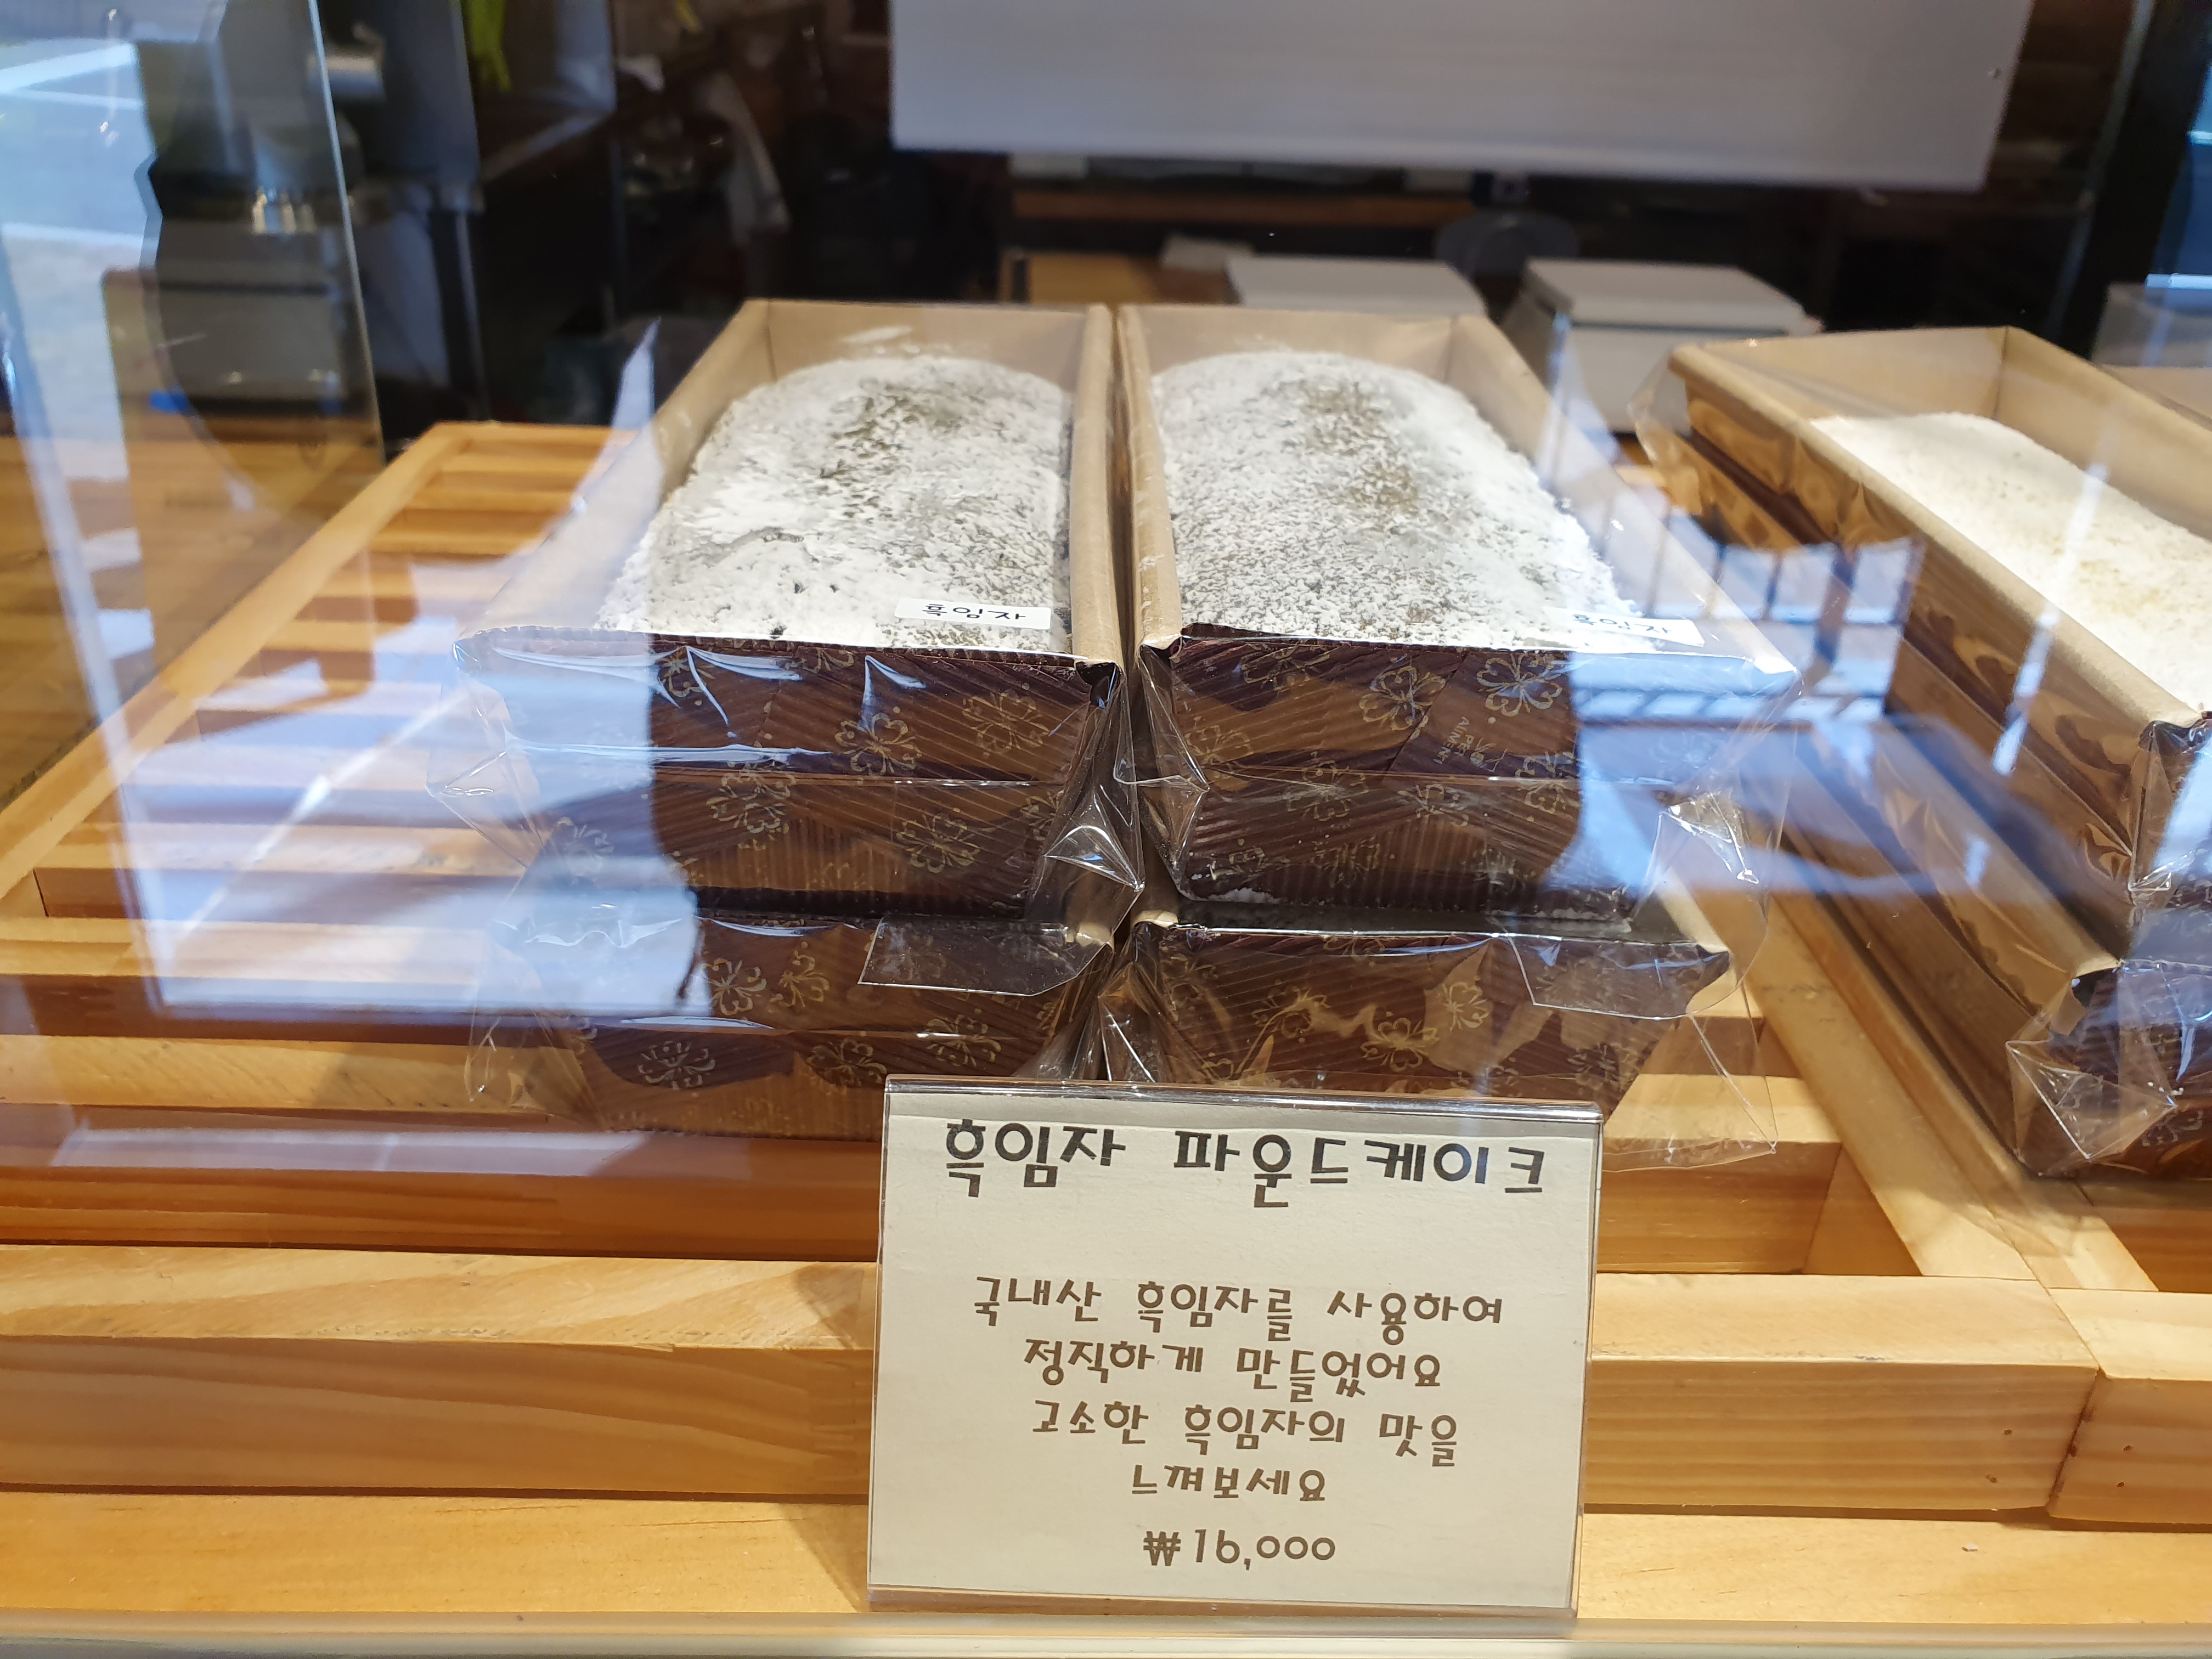 흑임자
흑임자
흑임자 파운드케이크
국내산 흑임자를 사용하여
정직하게 만들었어요
고소한 흑임자의 맛을
느껴보세요
₩16,000